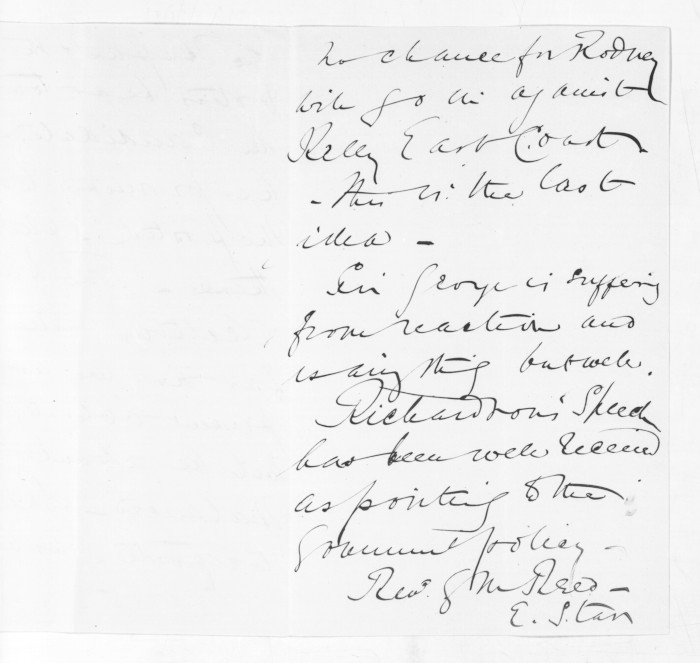 no chance for Rodney
will go in against
Kelly East Coast
- this is the last
idea -
Sir George is suffering
from reaction and
is anything but well.
Richardson's Speech
has been well received
as pointing to the
Government policy -
Rev. G M Reed -
E. Star